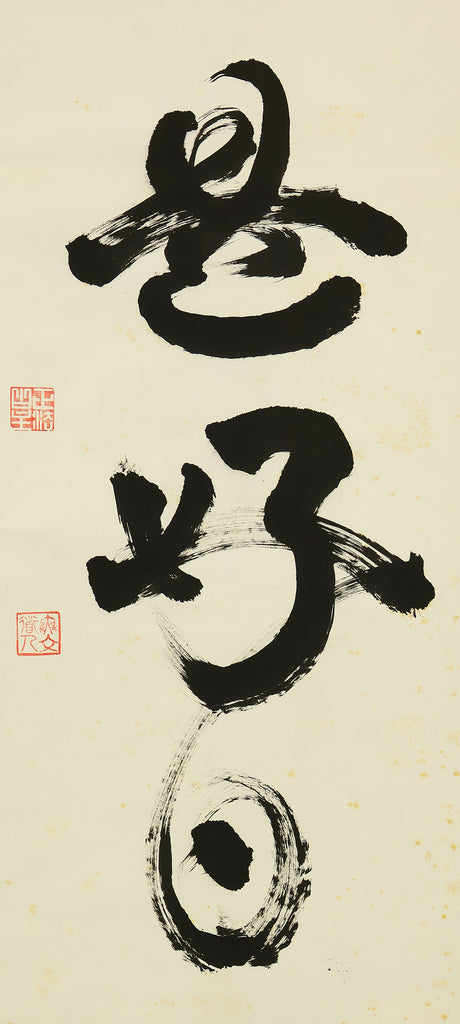 是好日